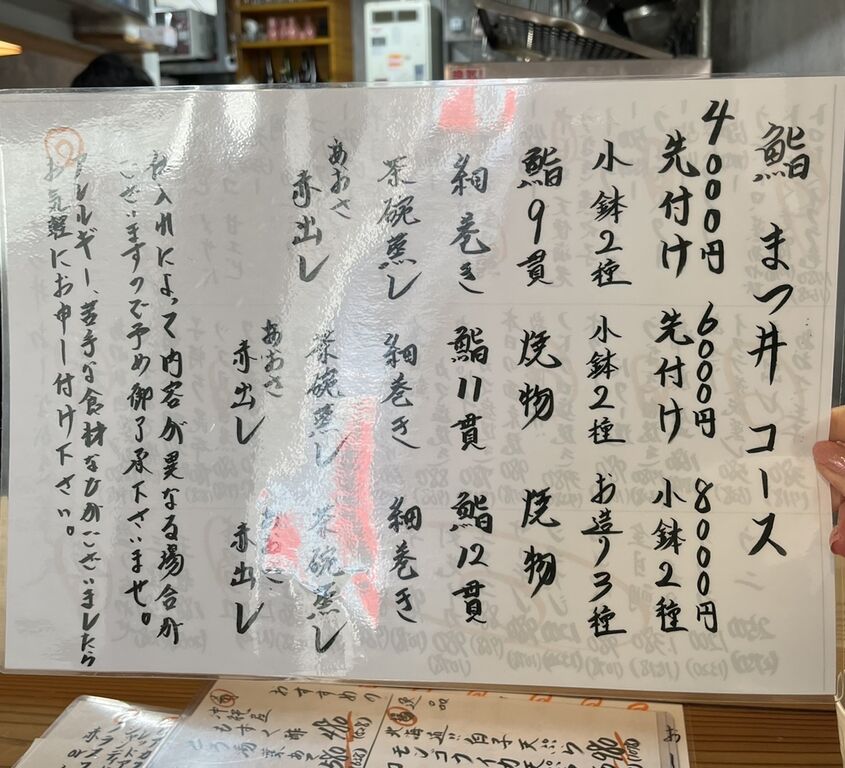 鮨 まつ井 コース
4000円
先付け
小鉢2種
鮨9貫
細巻き
茶碗蒸し
あおさ
赤出し
6000円
先付け
小鉢2種
焼物
鮨11貫
細巻き
茶碗蒸し
あおさ
赤出し
8000円
小鉢2種
お造り3種
焼物
鮨12貫
細巻き
茶碗蒸し
あおさ
赤出し
仕入れによって内容が異なる場合が
ございますので予め御了承下さいませ。
アレルギー、苦手な食材などがございましたら
お気軽にお申し付け下さい。
北海道 白子天ぷら
モンゴウイカ天ぷら
もずく酢